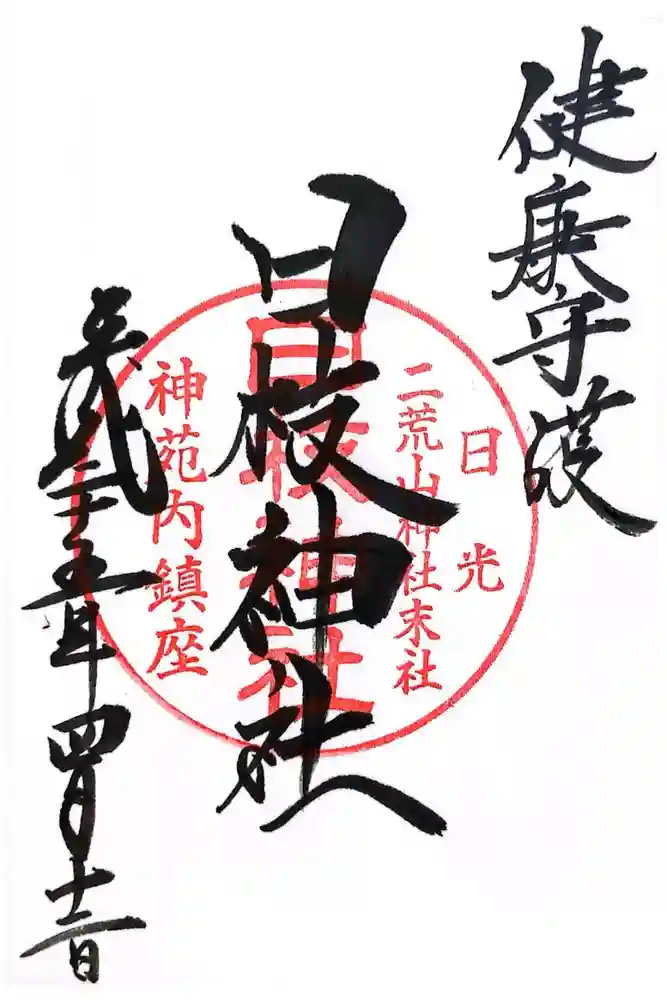 健康守護
日光
二荒山神社末社
日枝神社
日枝神社
神苑内鎮座
平成二十五年四月